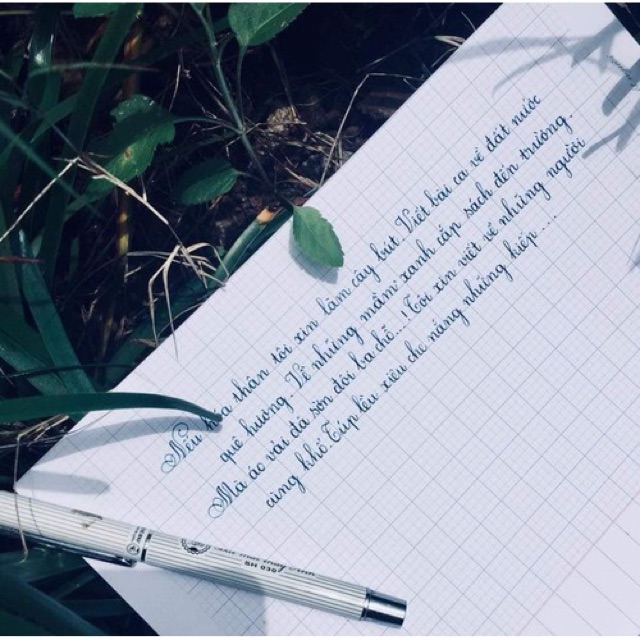 Nếu hóa thân tôi xin làm cây bút. Viết bài ca về đất nước
quê hương. Về những mầm xanh cắp sách đến trường.
Mà áo vải đã sờn đôi ba chỗ...! Tôi xin viết về những người
cùng khổ. Túp lều xiêu che nắng những hiếp....
SH 030